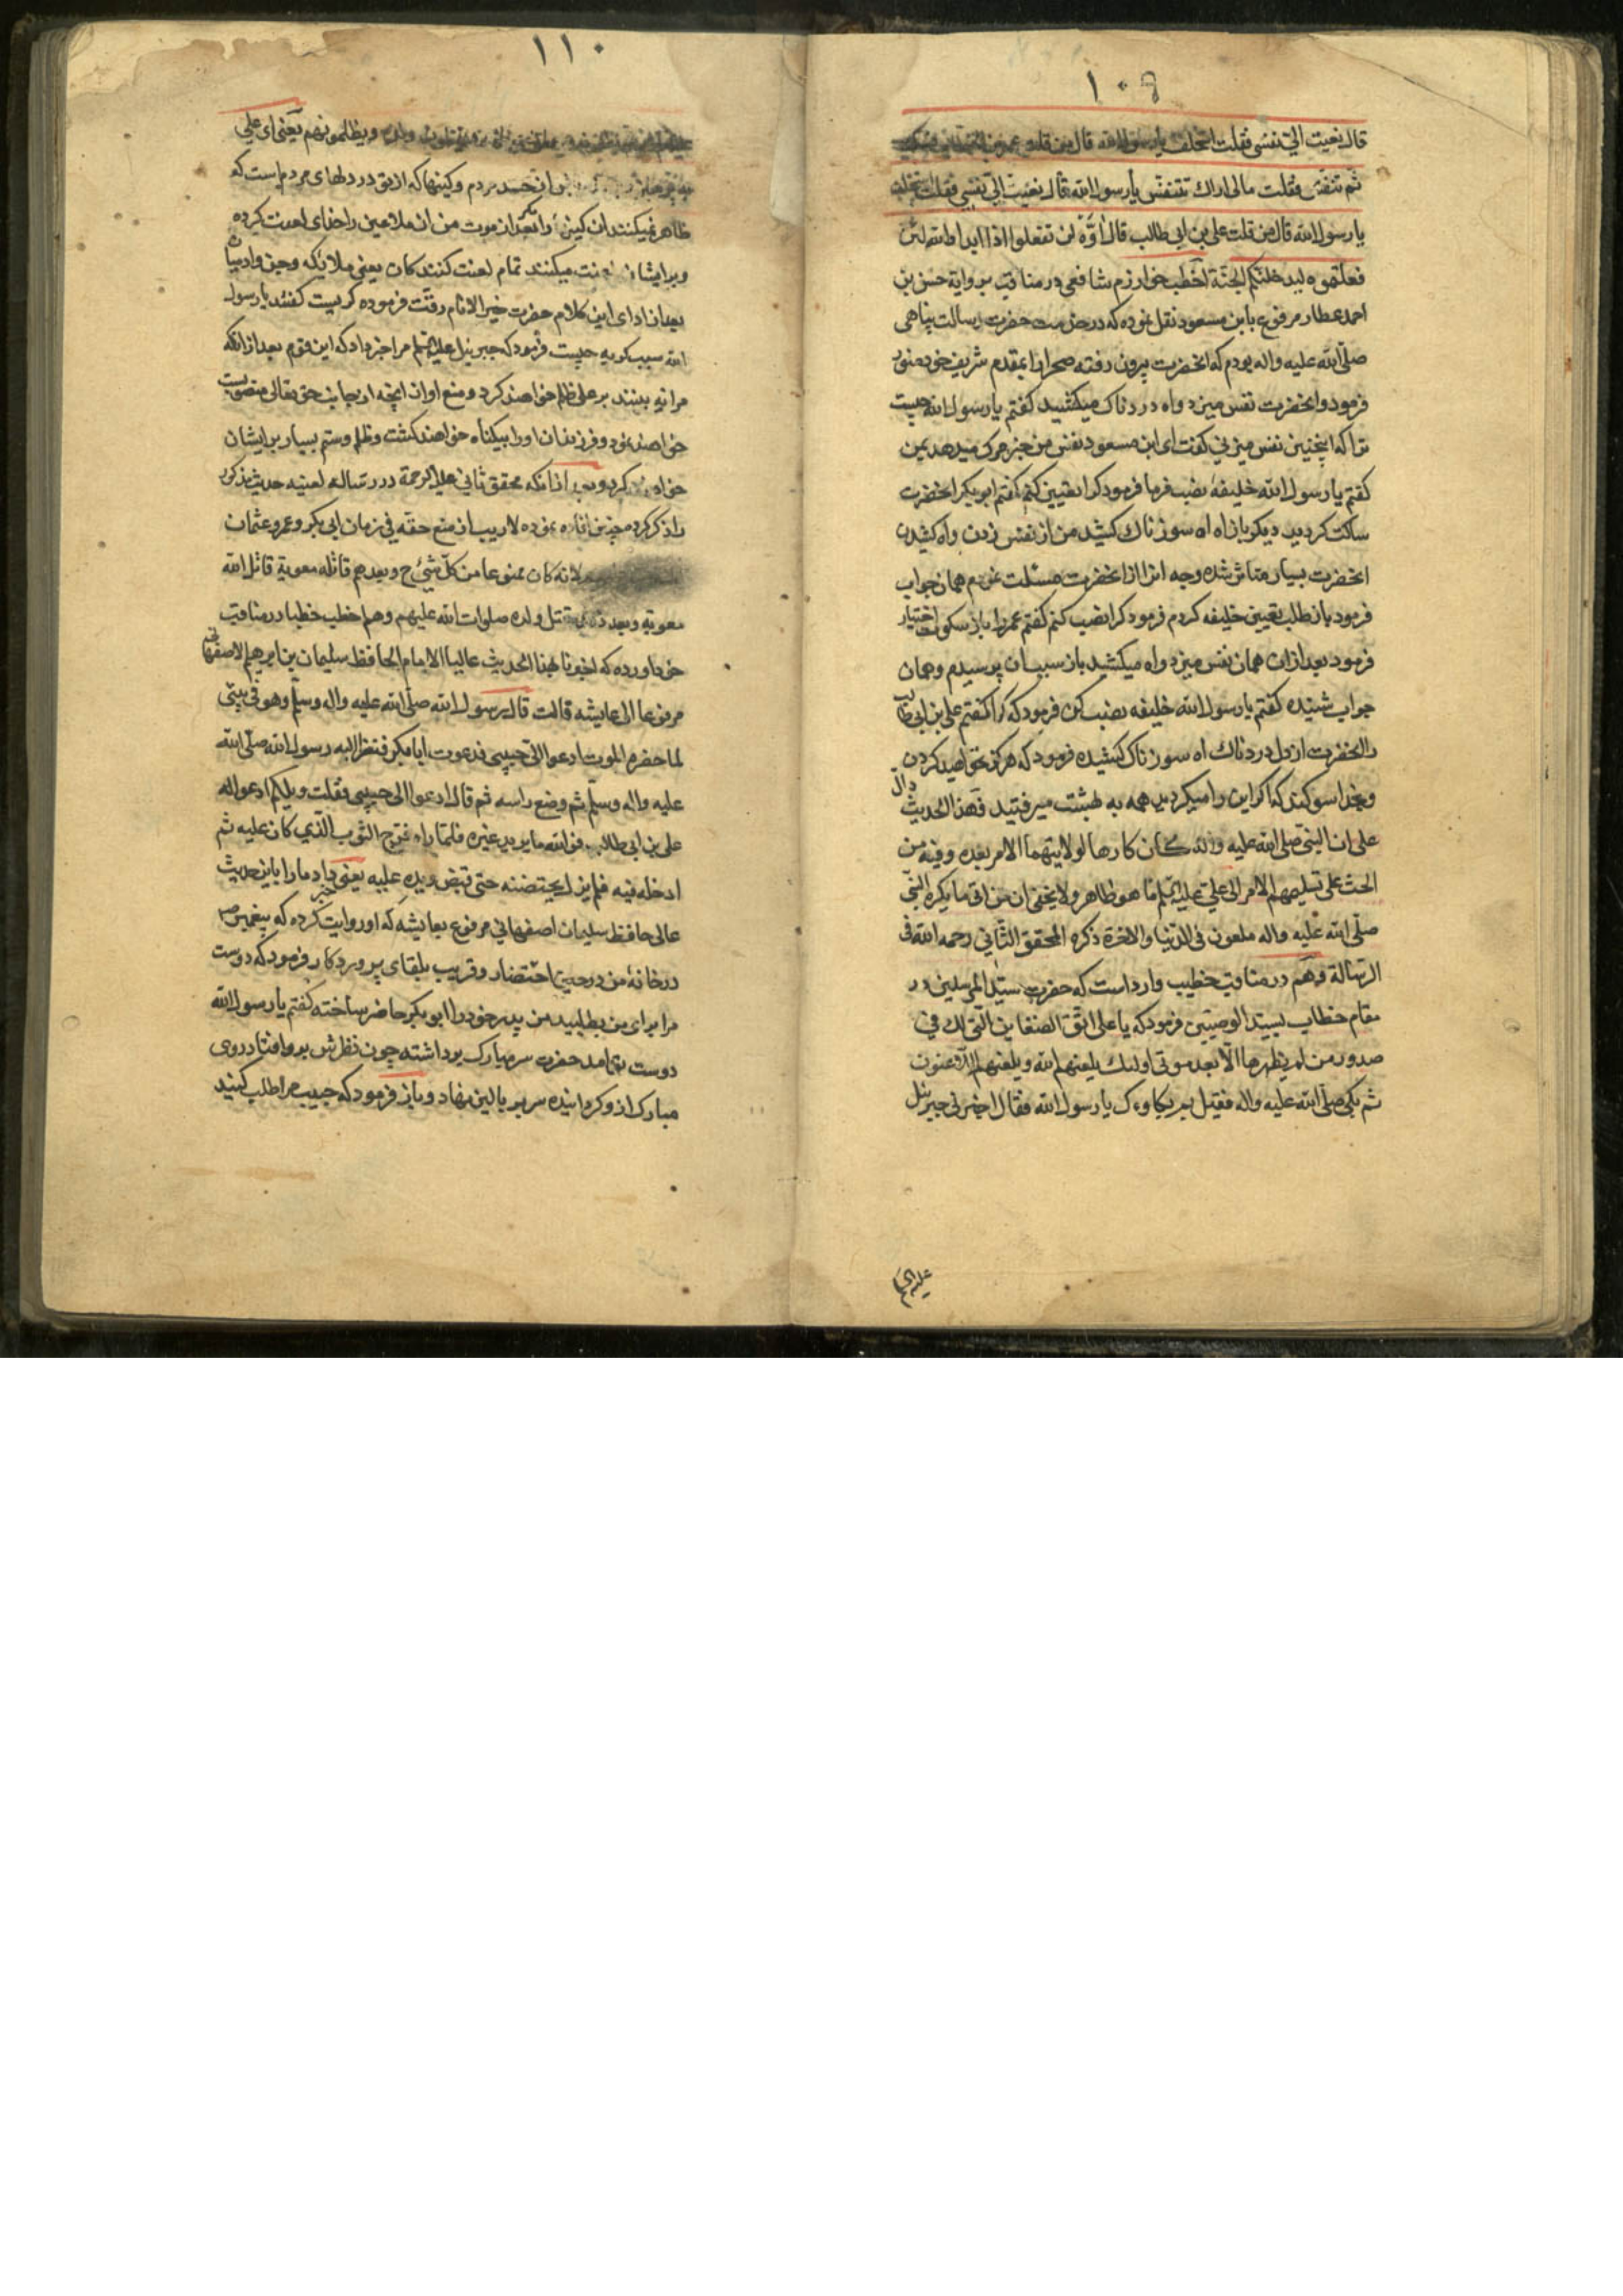 ١٠٩
قال نعیت الیّ نفسی فقلت استخلف یا رسول الله قال من قلت عمر بن
ثم تنفس فقلت مالی اراک تتنفّس یا رسول الله قال نعیت الیّ نفسی فقلت استخلف
یا رسول الله قال من قلت علی بن ابی طالب قال اوّه لن تفعلوا اذا ابدا والله لئن
فعلتموه لیدخلنّکم الجنّة اخطب خوارزم شافعی در مناقب بروایة حسن بن
احمد عطار مرفوع بابن مسعود نقل نموده که در خدمت حضرت رسالت پناهی
صلّی الله علیه واله بودم که انحضرت بیرون رفته صحرا را بمقدم شریف خود منور
فرمود وانحضرت نفس میزد واه دردناک میکشید کفتم یا رسول الله چیست
ترا که اینچنین نفس میزنی کفت ای ابن مسعود نفس من خبر مرک میدهد بمن
کفتم یا رسول الله خلیفه نصب فرما فرمود کرا تعیین کنم کفتم ابو بکر انحضرت
ساکت کردید دیکر باز اه سوزناک کشید من از نفس زدن واه کشیدن
انحضرت بسیار متاثر شده وجه انرا از انحضرت مسئلت نمودم همان جواب
فرمود باز طلب تعیین خلیفه کردم فرمود کرا نصب کنم کفتم عمر را باز سکوت اختیار
فرمود بعد ازان همان نفس میزد واه میکشید باز سبب ان پرسیدم وهمان
جواب شنیده کفتم یا رسول الله خلیفه نصب کن فرمود که کرا کفتم علی بن ابی طالب
را انحضرت از دل دردناک اه سوزناک کشیده فرمود که هرکز نخواهید کردن
وبخدا سوکند که اکر این را میکردید همه به بهشت میرفتید فهذا الحدیث دالّ
علی ان النبی صلی الله علیه واله کان کارها لولایتهما الامر بعده وفیه من
الحث علی تسلیمهم الامر الی علیّ علیه السّلم ما هو ظاهر ولا یخفی ان من اتی ما یکره النبی
صلّی الله علیه واله ملعون فی الدّنیا والاخرة ذکره المحقق الثّانی رحمه الله فی
الرّسالة وهم در مناقب خطیب وارد است که حضرت سیّد المرسلین در
مقام خطاب بسید الوصیین فرمود که یا علی اتّق الضغاین الّتی لک فی
صدور من لم یظهرها الّا بعد موتی اولئک یلعنهم الله ویلعنهم اللّاعنون
ثم بکی صلّی الله علیه واله فقیل بم بکاوءک یا رسول الله فقال اخبرنی جبرئیل
علیه السلم
١١٠
ویظلمونهم یعنی ای علی
وان حسد مردم وکینها که از تو در دلهای مردم است که
ظاهر نمیکنند ان کینه را مکر بعد از موت من ان ملاعین را خدای لعنت کرده
وبر ایشان لعنت میکنند تمام لعنت کنندکان یعنی ملایکه وجن وادمیان
بعد از ادای این کلام حضرت خیر الانام رقّت فرموده کریست کفتند یا رسول
الله سبب کریه چیست فرمود که جبرئیل علیه السّلم مرا خبر داد که این قوم بعد از انکه
مرا نه بینند بر علی ظلم خواهند کرد ومنع او از انچه از جانب حق تعالی منصوبست
خواهند نمود وفرزندان او را بیکناه خواهند کشت وظلم وستم بسیار بر ایشان
خواهند کرد وبعد از انکه محقق ثانی علیه الرحمة در رساله لعنیه حدیث مذکور
را ذکر کرده چنین افاده نموده لاریب ان منع حقّه فی زمان ابی بکر وعمر وعثمان
لانه کان ممنوعا من کلّ شیٔ ح وبعدهم قاتله معویة قاتل الله
معویة وبعد ذلک قتل ولده صلوات الله علیهم وهم اخطب خطبا در مناقب
خود اورده که اخبرنا بهذا الحدیث عالیا الامام الحافظ سلیمان بن ابرهیم الاصفهانی
مرفوعا الی عایشه قالت قال رسول الله صلّی الله علیه واله وسلّم وهو فی بیتی
لما حضره الموت ادعوا الیّ حبیبی فدعوت ابا بکر فنظر الیه رسول الله صلّی الله
علیه واله وسلّم ثم وضع راسه ثم قال ادعوا الی حبیبی فقلت ویلکم ادعوا له
علی بن ابی طالب فوالله ما یرید غیره فلمّا راه فرّج الثوب الّذی کان علیه ثم
ادخله فیه فلم یزل یحتضنه حتی قبض ویده علیه یعنی خبر داد ما را باین حدیث
عالی حافظ سلیمان اصفهانی مرفوع بعایشه که او روایت کرده که پیغمبر ص
در خانهٔ من در حین احتضار وقریب بلقای پروردکار فرمود که دوست
مرا برای من بطلبید من پدر خود را ابو بکر حاضر ساخته کفتم یا رسول الله
دوست تو امد حضرت سر مبارک برداشته چون نظرش برو افتاد روی
مبارک از و کردانیده سر بر بالین نهاد وباز فرمود که حبیب مرا طلب کنید